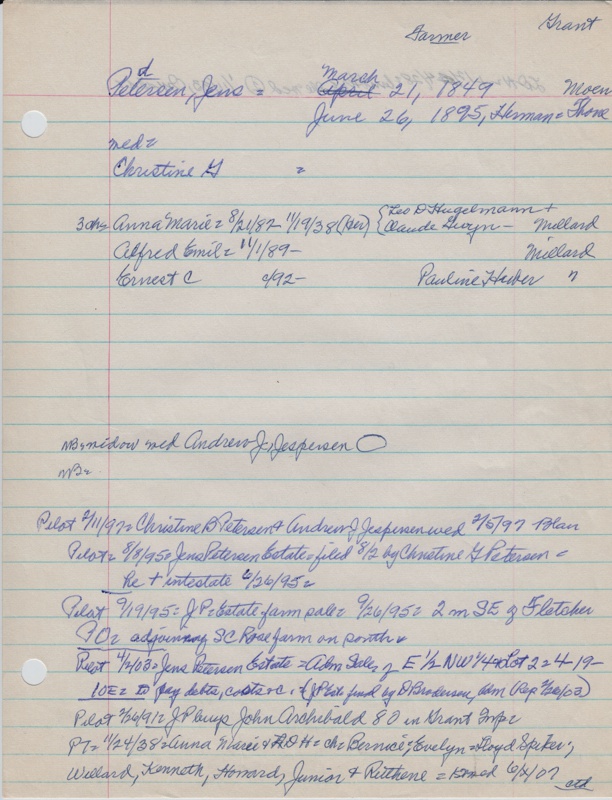 Farmer Grant
d
Petersen, Jens = March April 21, 1849 Moen
June 26, 1895, Herman = Thone
med =
Christine G =
3 ch = Anna Marie = 8/21/87 - 11/19/38 (Her) { Leo D Hugelmann +
Claude Gwyn - Millard
Alfred Emil = 11/1/89 - Millard
Ernest C c/92 - Pauline Huber "
NB = widow med Andrew J. Jespersen
NB =
Pilot 2/11/97 = Christine B Petersen + Andrew J Jespersen wed 2/5/97 Blair
Pilot = 8/8/95 = Jens Petersen Estate = filed 8/2 by Christine G Petersen =
He + intestate 6/26/95 =
Pilot 9/19/95 = J P = Estate farm sale = 9/26/95 = 2 m SE of Fletcher
PO = adjoining SC Rose farm on south
Pilot 4/2/03 = Jens Petersen Estate = Adm Sale of E 1/2 NW 1/4 + Lot 2 = 4-19-
10E = to pay debts, costs + c. = (J P Est fund by D Brodersen, Adm (Rep
Pilot 2/26/91 = J P buys John Archibald 80 in Grant Twp =
PT = 11/24/38 = Anna Marie + LDH = ch = Bernice; Evelyn = Lloyd Spiker;
Willard, Kenneth, Howard, Junior + Ruthene = med
ctd